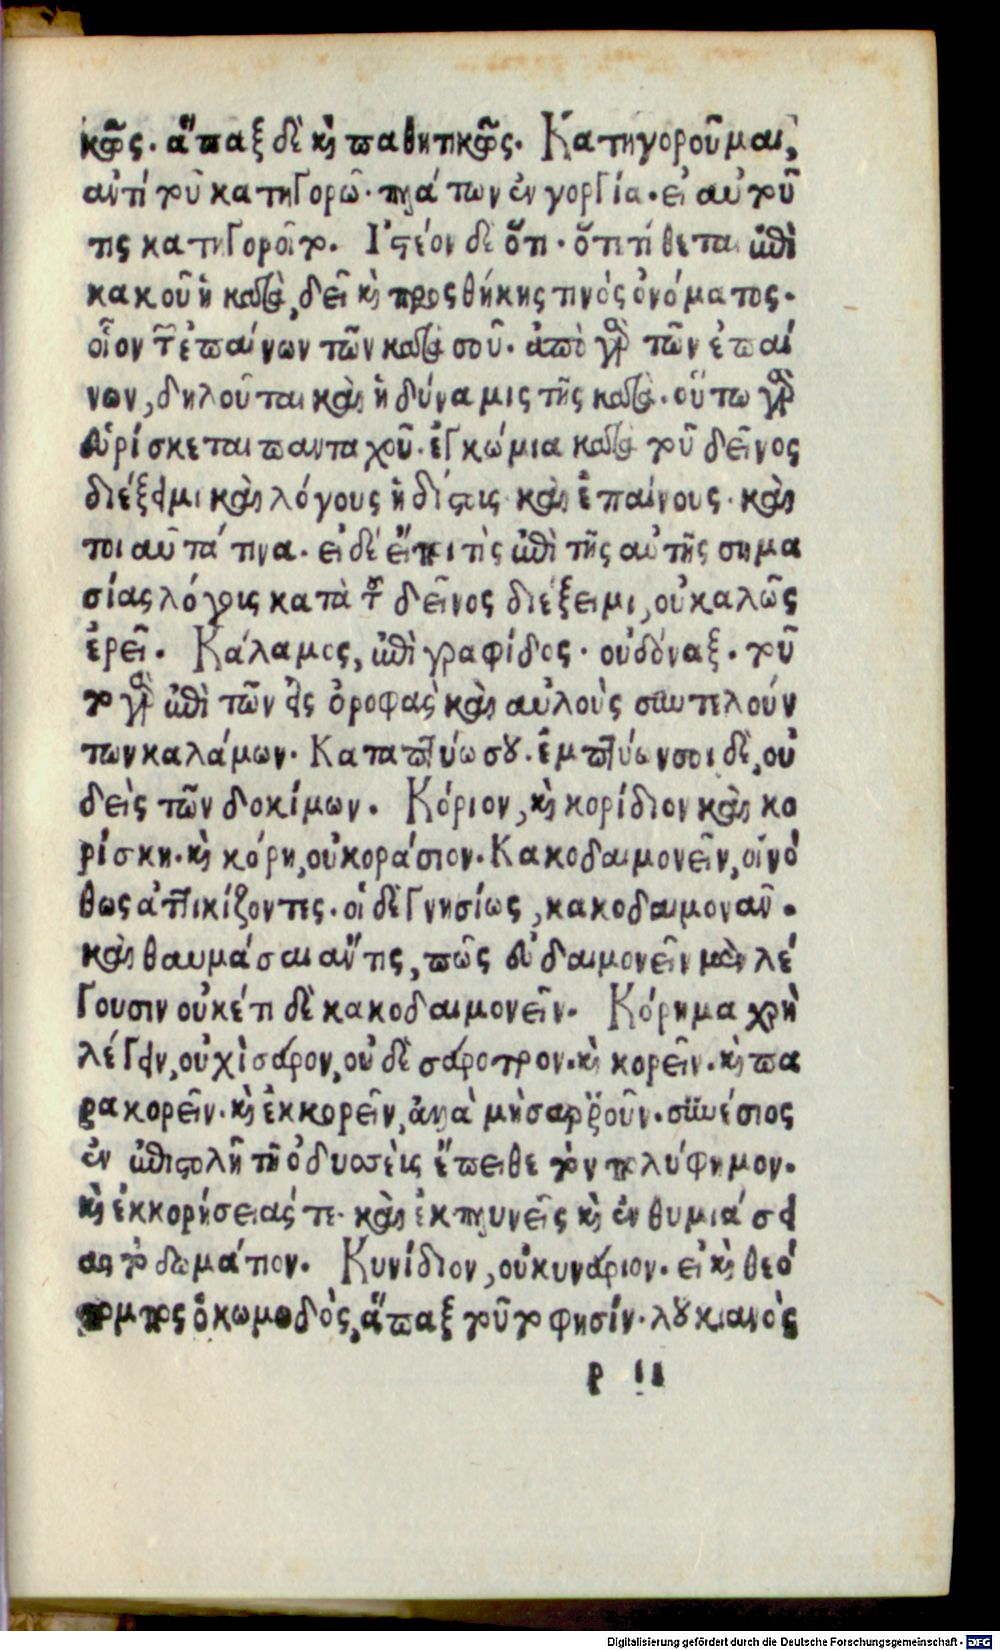 κῶς. ἅπαξ δὲ κὶ παθητικῶς. Κατηγοροῦμαι,
αντί τοῦ κατηγορῶ. πλάτων ἐν γοργία. εἰ αυτοῦ
τις κατηγοροῖτο. Ιστέον δὲ ὅτι. ὅτι τίθεται ἐπὶ
κακοῦ ἡ κατὰ, δεῖ κὶ προσθήκης τινὸς ὀνόματος.
οἷον τῶν ἐπαίνων τῶν κατὰ σοῦ. ἀπὸ γὰρ τῶν ἐπαί
νων, δηλοῦται καὶ ἡ δύναμις τῆς κατὰ. οὕτω γὰρ
εὑρίσκεται πανταχοῦ. ἐγκώμια κατὰ τοῦ δεῖνος
διέξειμι καὶ λόγους ἡδίστους καὶ ἐπαίνους. καὶ
τοιαῦτά τινα. εἰ δέ εἴποι τὶς ἐπὶ τῆς αὐτῆς σημα
σίας λόγοις κατὰ τοῦ δεῖνος διέξειμι, οὐ καλῶς
ἐρεῖ. Κάλαμος, ἐπὶ γραφίδος. οὐ δόναξ. τοῦ
το γὰρ ἐπὶ τῶν εἰς ὀροφὰς καὶ αὐλοὺς συντελούν
των καλάμων. Καταπτύω σου. ἐμπτύων σοι δὲ, οὐ
δεὶς τῶν δοκίμων. Κόριον, κὶ κορίδιον καὶ κο
ρίσκη. κὶ κόρη, οὐ κοράσιον. Κακοδαιμονεῖν, οἱ νό
θως ἀττικίζοντες. οἱ δὲ γνησίως, κακοδαιμονᾶν.
καὶ θαυμάσαι ἄν τις, πῶς εὐδαιμονεῖν μὲν λέ
γουσιν οὐκέτι δὲ κακοδαιμονεῖν. Κόρημα χρὴ
λέγειν, οὐχὶ σάρον, οὐδὲ σάροτρον. κὶ κορεῖν. κὶ πα
ρακορεῖν. κὶ ἐκκορεῖν, ἀλλὰ μὴ σαροῦν. συνέσιος
ἐν ἐπιστολῆ τῆ ὀδυσσεὺς ἔπειθε τὸν πολύφημον.
κὶ ἐκκορήσειάς τε. καὶ ἐκπλυνεῖς κὶ ἐνθυμιάσει
ας τὸ δωμάτιον. Κυνίδιον, οὐ κυνάριον. εἰ κὶ θεό
πομπος ὁ κωμωδὸς, ἅπαξ τοῦτο φησίν. λουκιανὸς
ρ ιι
Digitalisierung gefördert durch die Deutsche Forschungsgemeinschaft - DFG